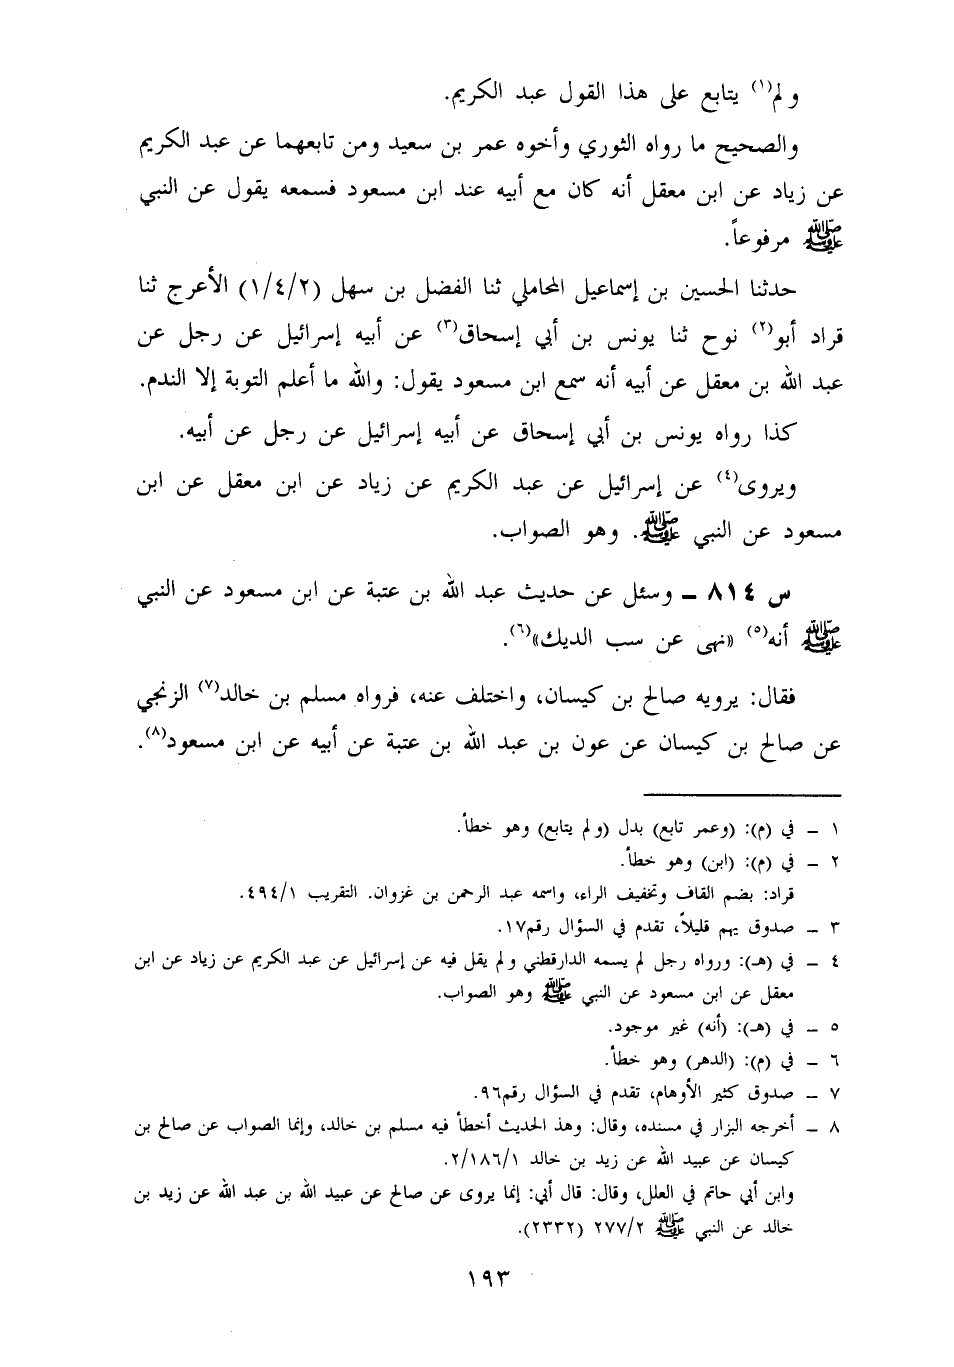 ولم(١) يتابع على هذا القول عبد الكريم.
والصحيح ما رواه الثوري وأخوه عمر بن سعيد ومن تابعهما عن عبد الكريم
عن زياد عن ابن معقل أنه كان مع أبيه عند ابن مسعود فسمعه يقول عن النبي
ﷺ مرفوعاً.
حدثنا الحسين بن إسماعيل المحاملي ثنا الفضل بن سهل (١/٤/٢) الأعرج ثنا
قراد أبو(٢) نوح ثنا يونس بن أبي إسحاق(٣) عن أبيه إسرائيل عن رجل عن
عبد الله بن معقل عن أبيه أنه سمع ابن مسعود يقول: والله ما أعلم التوبة إلا الندم.
كذا رواه يونس بن أبي إسحاق عن أبيه إسرائيل عن رجل عن أبيه.
ويروى(٤) عن إسرائيل عن عبد الكريم عن زياد عن ابن معقل عن ابن
مسعود عن النبي ﷺ. وهو الصواب.
س ٨١٤ – وسئل عن حديث عبد الله بن عتبة عن ابن مسعود عن النبي
ﷺ أنه(٥) «نهى عن سب الديك»(٦).
فقال: يرويه صالح بن كيسان، واختلف عنه، فرواه مسلم بن خالد(٧) الزنجي
عن صالح بن كيسان عن عون بن عبد الله بن عتبة عن أبيه عن ابن مسعود(٨).
١ – في (م): (وعمر تابع) بدل (ولم يتابع) وهو خطأ.
٢ – في (م): (ابن) وهو خطأ.
قراد: بضم القاف وتخفيف الراء، واسمه عبد الرحمن بن غزوان. التقريب ٤٩٤/١.
٣ – صدوق يهم قليلاً، تقدم في السؤال رقم١٧.
٤ – في (هـ): ورواه رجل لم يسمه الدارقطني ولم يقل فيه عن إسرائيل عن عبد الكريم عن زياد عن ابن
معقل عن ابن مسعود عن النبي ﷺ وهو الصواب.
٥ – في (هـ): (أنه) غير موجود.
٦ – في (م): (الدهر) وهو خطأ.
٧ – صدوق كثير الأوهام، تقدم في السؤال رقم٩٦.
٨ – أخرجه البزار في مسنده، وقال: وهذ الحديث أخطأ فيه مسلم بن خالد، وإنما الصواب عن صالح بن
كيسان عن عبيد الله عن زيد بن خالد ٢/١٨٦/١.
وابن أبي حاتم في العلل، وقال: قال أبي: إنما يروى عن صالح عن عبيد الله بن عبد الله عن زيد بن
خالد عن النبي ﷺ ٢٧٧/٢ (٢٣٣٢).
١٩٣